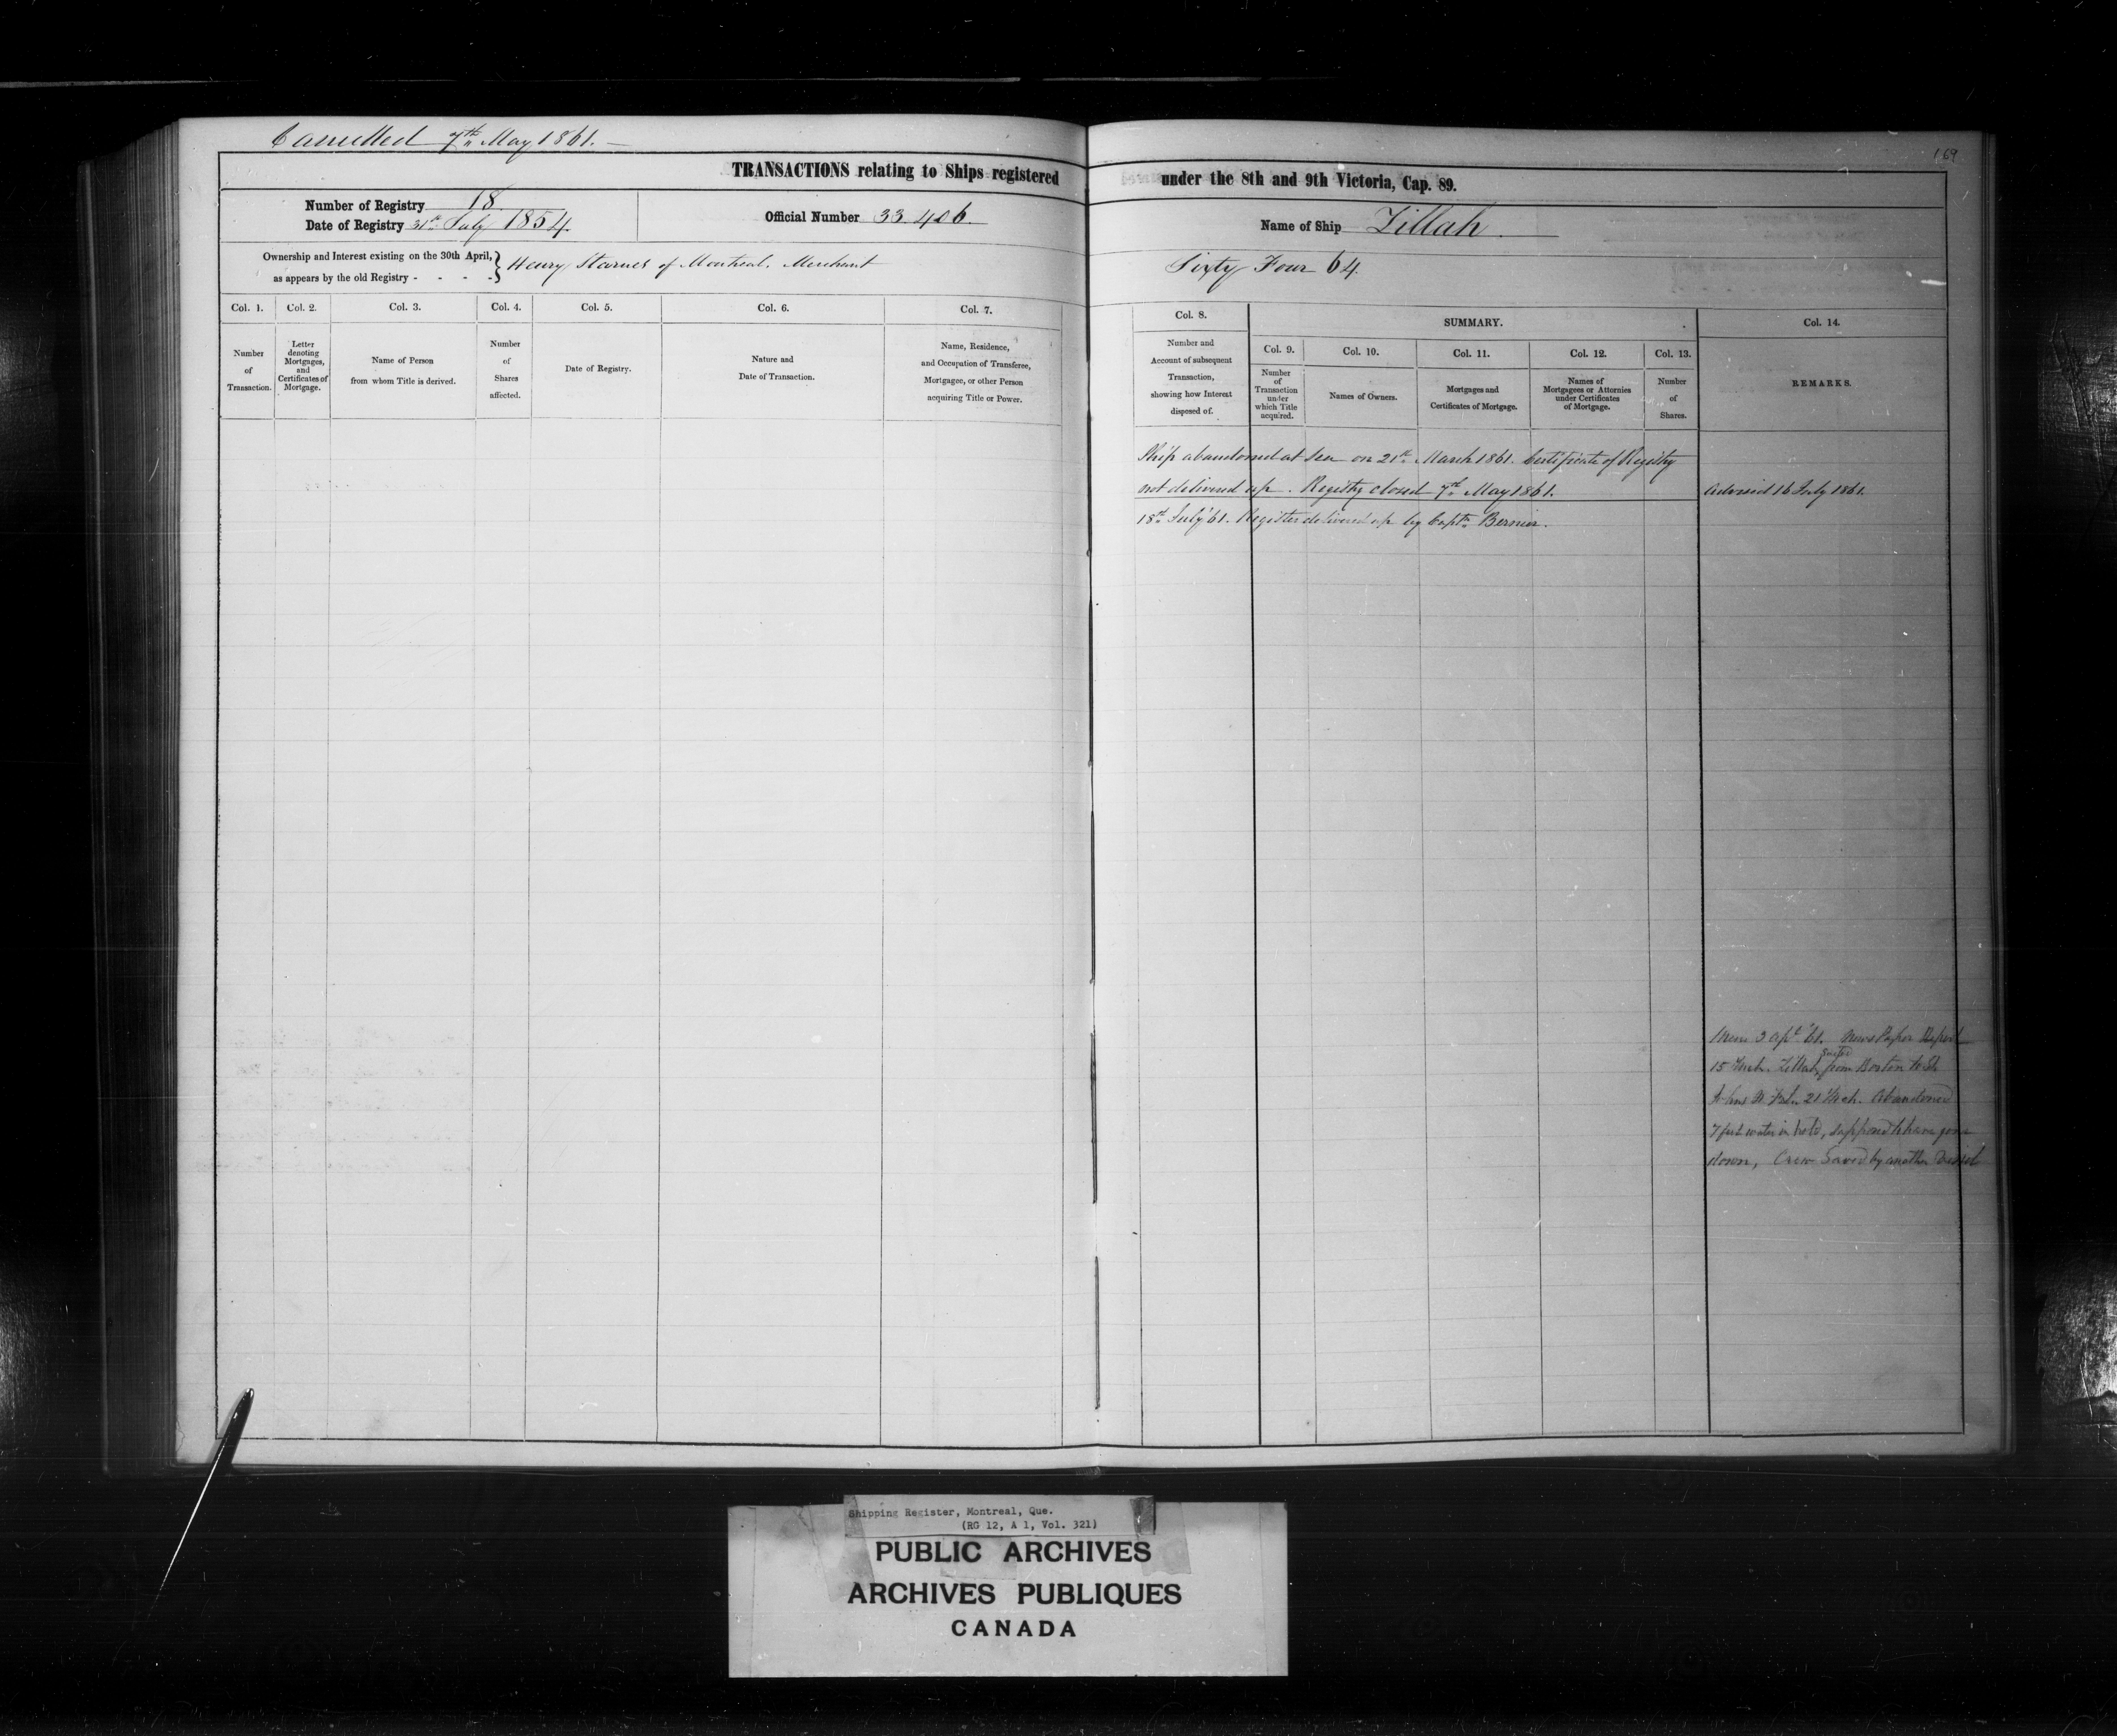 Cancelled 7th May 1861.
169
TRANSACTIONS relating to Ships registered under the 8th and 9th Victoria, Cap. 89.
Number of Registry 18
Date of Registry 31st July 1854.
Official Number 33.406.
Name of Ship Zillah.
Ownership and Interest existing on the 30th April,
as appears by the old Registry - - - -
} Henry Starnes of Montreal. Merchant
Sixty Four 64.
Col. 1. Col. 2. Col. 3. Col. 4. Col. 5. Col. 6. Col. 7.
Number
of
Transaction.
Letter
denoting
Mortgages,
and
Certificates of
Mortgage.
Name of Person
from whom Title is derived.
Number
of
Shares
affected.
Date of Registry.
Nature and
Date of Transaction.
Name, Residence,
and Occupation of Transferee,
Mortgagee, or other Person
acquiring Title or Power.
Col. 8.
Number and
Account of subsequent
Transaction,
showing how Interest
disposed of.
SUMMARY.
Col. 9.
Number
of
Transaction
under
which Title
acquired.
Col. 10.
Names of Owners.
Col. 11.
Mortgages and
Certificates of Mortgage.
Col. 12.
Names of
Mortgagees or Attornies
under Certificates
of Mortgage.
Col. 13.
Number
of
Shares.
Col. 14.
REMARKS.
Ship abandoned at Sea on 21st March 1861. Certificate of Registry
not delivered up. Registry closed 7th May 1861.
Advised 16 July 1861.
18th July '61. Register delivered up by Captn Bernier.
3 Apl '61. News Paper Report
15 Mch. Zillah from Boston to St.
Johns 21 Mch. Abandoned
7 feet water in hold, supposed to have gone
down, Crew Saved by another Vessel
Shipping Register, Montreal, Que.
(RG 12, A 1, Vol. 321)
PUBLIC ARCHIVES
ARCHIVES PUBLIQUES
CANADA